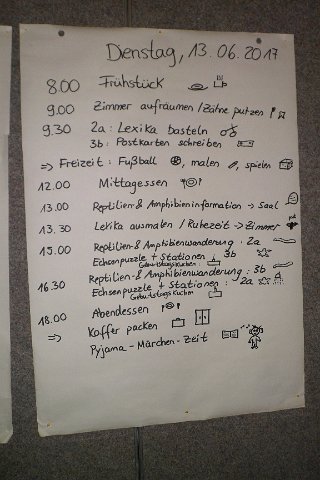 Dienstag, 13.06.2017
8.00 Frühstück
9.00 Zimmer aufräumen / Zähne putzen
9.30 2a: Lexika basteln
3b: Postkarten schreiben
⇒ Freizeit: Fußball, malen, spielen
12.00 Mittagessen
13.00 Reptilien- & Amphibieninformation → Saal
13.30 Lexika ausmalen / Ruhezeit → Zimmer
15.00 Reptilien- & Amphibienwanderung: 2a
Echsenpuzzle + Stationen: 3b
Geburtstagskuchen
16.30 Reptilien- & Amphibienwanderung: 3b
Echsenpuzzle + Stationen: 2a
Geburtstagskuchen
18.00 Abendessen
⇒ Koffer packen
Pyjama-Märchen-Zeit